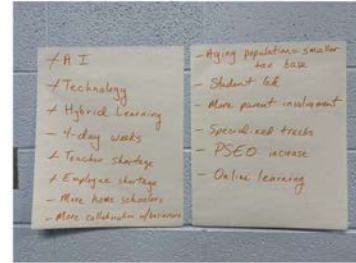 + AI
+ Technology
+ Hybrid Learning
- 4-day weeks
+ Teacher shortage
+ Employee shortage
- More home schoolers
- More collaboration w/business
- Aging population = smaller
tax base
- Student led
- More parent involvement
- Specialized tracks
- PSEO increase
- Online learning